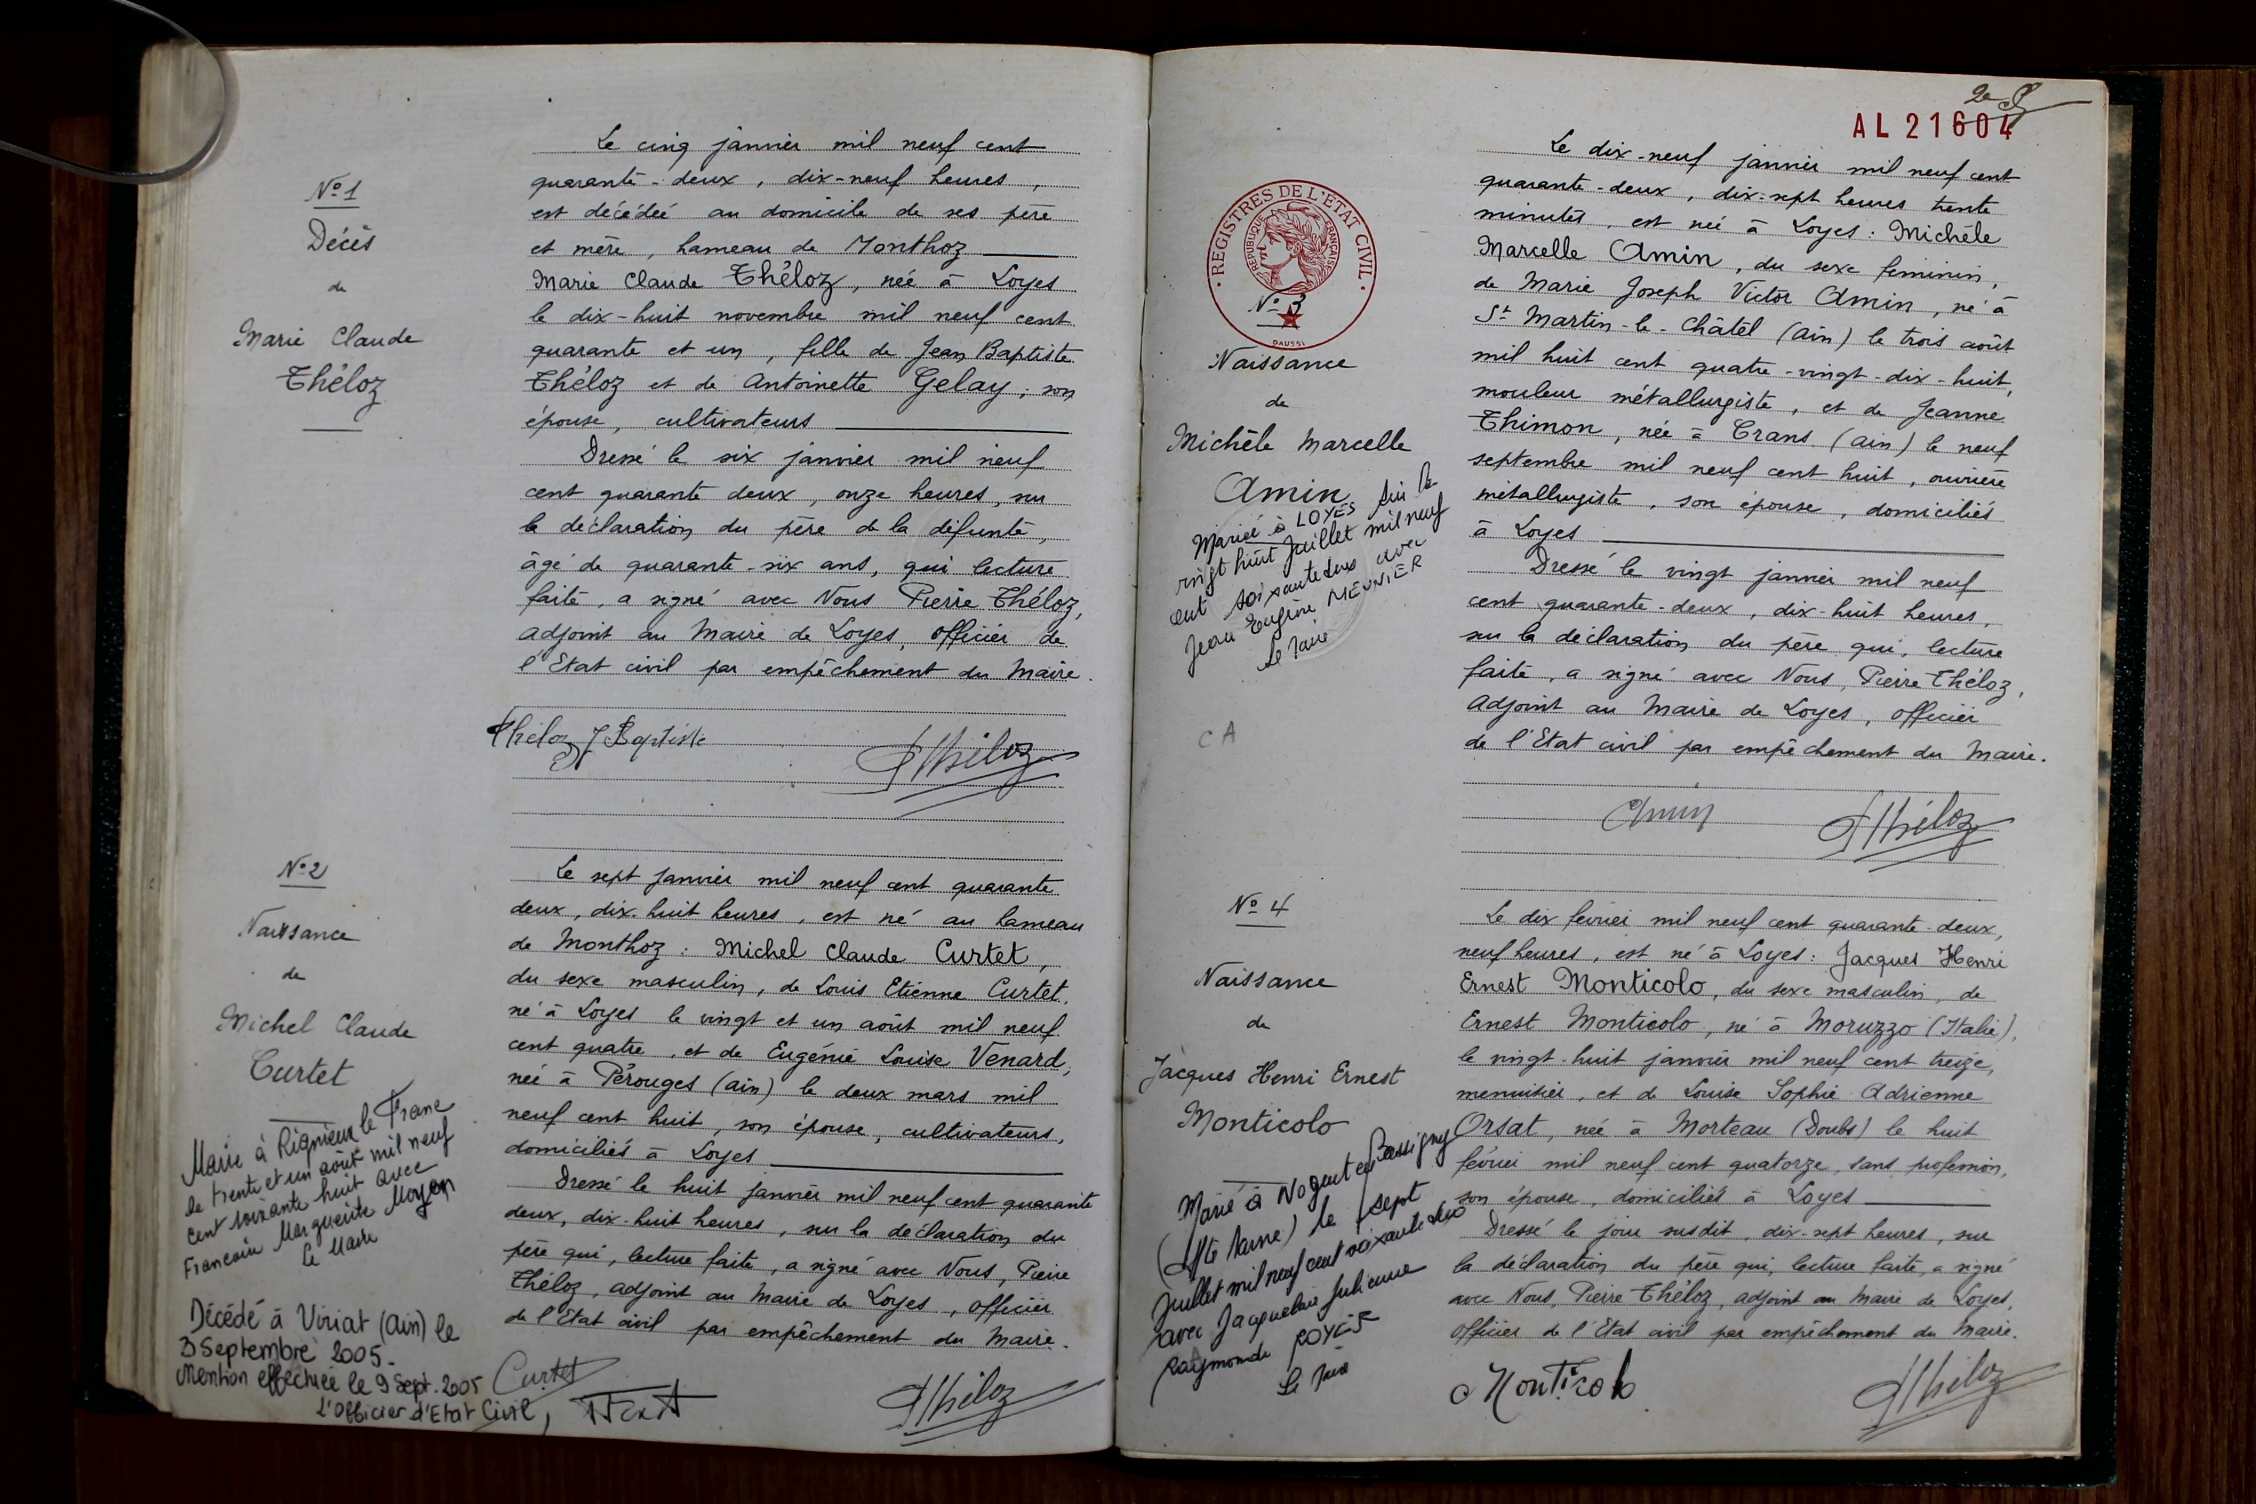 Nº1
Décès
de
Marie Claude
Théloz
Le cinq janvier mil neuf cent
quarante-deux, dix-neuf heures,
est décédée au domicile de ses père
et mère, hameau de Monthoz
Marie Claude Théloz, née à Loyes
le dix-huit novembre mil neuf cent
quarante et un, fille de Jean Baptiste
Théloz et de Antoinette Gelay, son
épouse, cultivateurs
Dressé le six janvier mil neuf
cent quarante deux, onze heures, sur
la déclaration du père de la défunte,
âgé de quarante-six ans, qui lecture
faite, a signé avec Nous Pierre Théloz,
adjoint au Maire de Loyes, officier de
l'Etat civil par empêchement du Maire.
Théloz J Baptiste
PThéloz
Nº2
Naissance
de
Michel Claude
Curtet
Marié à Rignieux le Franc
le trente et un août mil neuf
cent soixante huit avec
Marguerite Moyen
Le Maire
Décédé à Viriat (Ain) le
3 Septembre 2005.
Mention effectuée le 9 Sept. 2005
L'Officier d'Etat Civil,
Le sept janvier mil neuf cent quarante
deux, dix-huit heures, est né au hameau
de Monthoz : Michel Claude Curtet,
du sexe masculin, de Louis Etienne Curtet,
né à Loyes le vingt et un août mil neuf
cent quatre, et de Eugénie Louise Venard,
née à Pérouges (Ain) le deux mars mil
neuf cent huit, son épouse, cultivateurs,
domiciliés à Loyes
Dressé le huit janvier mil neuf cent quarante
deux, dix-huit heures, sur la déclaration du
père qui, lecture faite, a signé avec Nous, Pierre
Théloz, adjoint au Maire de Loyes, officier
de l'Etat civil par empêchement du Maire.
Curtet
PThéloz
2e
AL 21604
REGISTRES DE L'ETAT CIVIL
REPUBLIQUE FRANÇAISE
DAUSSI
Nº 3
Naissance
de
Michèle Marcelle
Amin
Mariée à LOYES Ain le
vingt huit Juillet mil neuf
cent soixante deux avec
Jean Eugène MEUNIER
Le Maire
CA
Le dix-neuf janvier mil neuf cent
quarante-deux, dix-sept heures trente
minutes, est née à Loyes : Michèle
Marcelle Amin, du sexe féminin,
de Marie Joseph Victor Amin, né à
St Martin-le-Châtel (Ain) le trois août
mil huit cent quatre-vingt-dix-huit,
mouleur métallurgiste, et de Jeanne
Thimon, née à Crans (Ain) le neuf
septembre mil neuf cent huit, ouvrière
métallurgiste, son épouse, domiciliés
à Loyes
Dressé le vingt janvier mil neuf
cent quarante-deux, dix-huit heures,
sur la déclaration du père qui, lecture
faite, a signé avec Nous, Pierre Théloz,
adjoint au Maire de Loyes, officier
de l'Etat civil par empêchement du Maire.
Amin
PThéloz
Nº 4
Naissance
de
Jacques Henri Ernest
Monticolo
Marié à Nogent en Bassigny
(Hte Marne) le sept
Juillet mil neuf cent soixante deux
avec Jacqueline Julienne
Raymonde ROYER
Le Maire
Le dix février mil neuf cent quarante-deux,
neuf heures, est né à Loyes : Jacques Henri
Ernest Monticolo, du sexe masculin, de
Ernest Monticolo, né à Moruzzo (Italie),
le vingt-huit janvier mil neuf cent treize,
menuisier, et de Louise Sophie Adrienne
Orsat, née à Morteau (Doubs) le huit
février mil neuf cent quatorze, sans profession,
son épouse, domiciliés à Loyes
Dressé le jour susdit, dix-sept heures, sur
la déclaration du père qui, lecture faite, a signé
avec Nous, Pierre Théloz, adjoint au Maire de Loyes,
officier de l'Etat civil par empêchement du Maire.
Monticolo
PThéloz